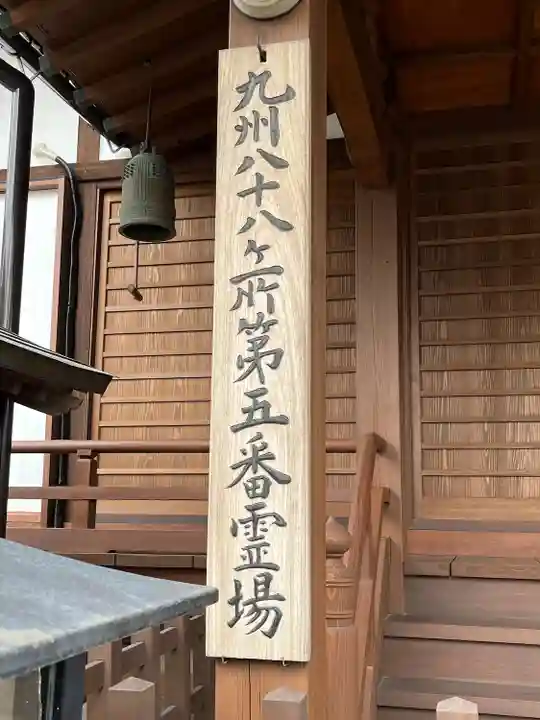 九州八十八ヶ所第五番霊場